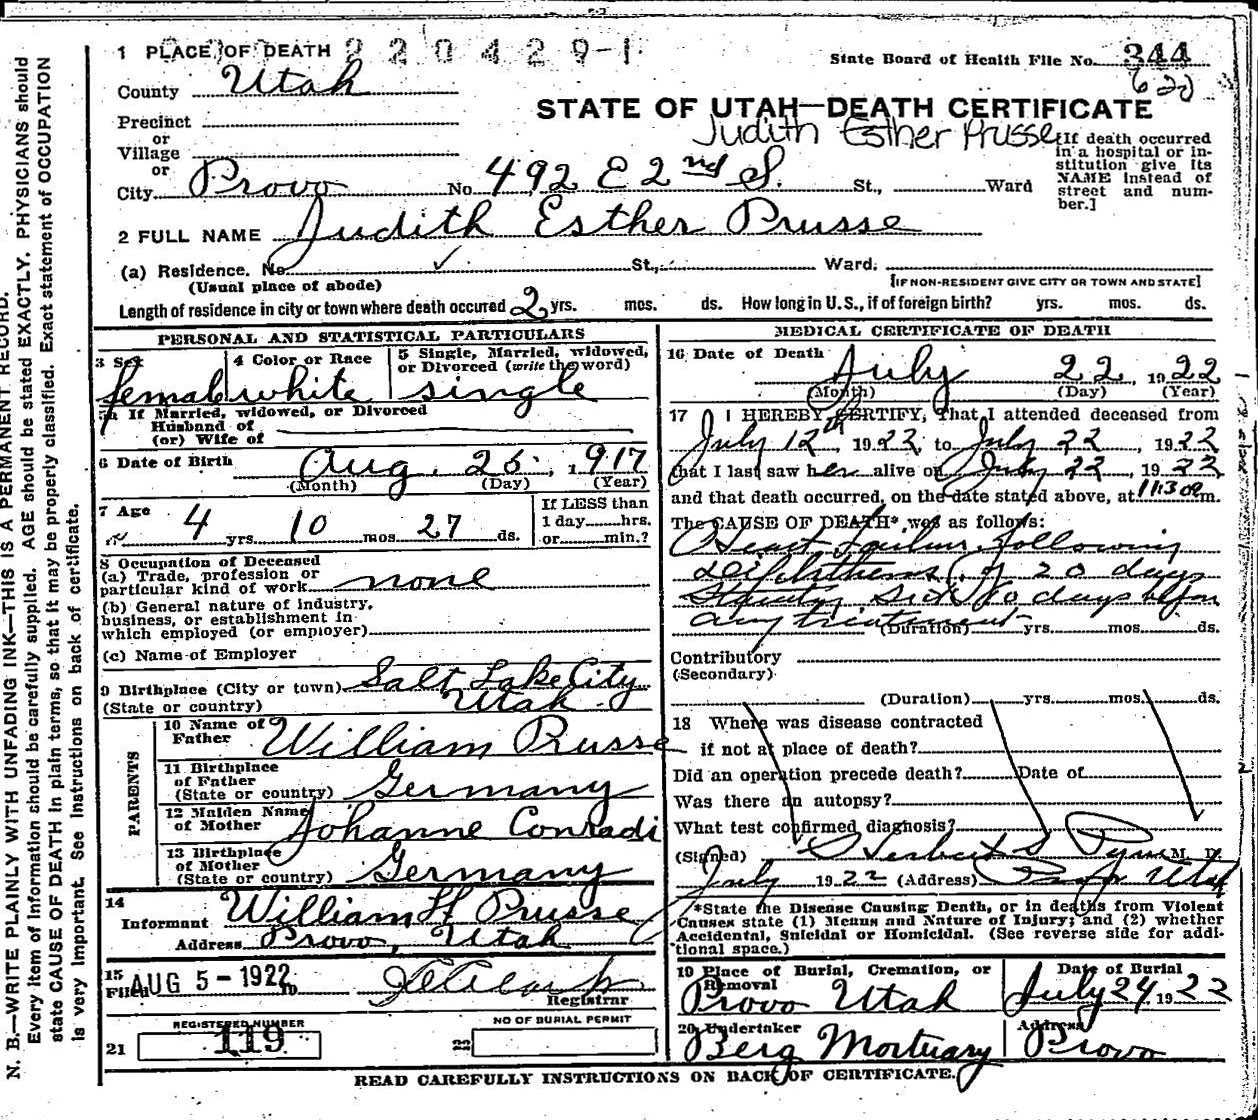 1 PLACE OF DEATH 220429-1
State Board of Health File No. 344
620
County Utah
STATE OF UTAH—DEATH CERTIFICATE
Judith Esther Prusse
Precinct
or
Village
or
City Provo No. 492 E 2nd S. St., Ward
[If death occurred
in a hospital or in-
stitution give its
NAME instead of
street and num-
ber.]
2 FULL NAME Judith Esther Prusse
(a) Residence. No. St., Ward.
(Usual place of abode)
[IF NON-RESIDENT GIVE CITY OR TOWN AND STATE]
Length of residence in city or town where death occured 2 yrs. mos. ds. How long in U. S., if of foreign birth? yrs. mos. ds.
PERSONAL AND STATISTICAL PARTICULARS
3 Sex
female
4 Color or Race
white
5 Single, Married, widowed,
or Divorced (write the word)
single
5a If Married, widowed, or Divorced
Husband of
(or) Wife of
6 Date of Birth Aug. 25, 1917
(Month) (Day) (Year)
7 Age 4 yrs. 10 mos. 27 ds.
If LESS than
1 day hrs.
or min.?
8 Occupation of Deceased
(a) Trade, profession or
particular kind of work none
(b) General nature of industry,
business, or establishment in
which employed (or employer)
(c) Name of Employer
9 Birthplace (City or town) Salt Lake City
(State or country) Utah
PARENTS
10 Name of
Father William Prusse
11 Birthplace
of Father
(State or country) Germany
12 Maiden Name
of Mother Johanne Conradi
13 Birthplace
of Mother
(State or country) Germany
14
Informant William H Prusse
Address Provo, Utah
15
Filed AUG 5 - 1922
Registrar
REGISTERED NUMBER
21 119
NO OF BURIAL PERMIT
22
MEDICAL CERTIFICATE OF DEATH
16 Date of Death July 22, 1922
(Month) (Day) (Year)
17 I HEREBY CERTIFY, That I attended deceased from
July 12th 1922, to July 22, 1922
that I last saw her alive on July 22, 1922
and that death occurred, on the date stated above, at 11:30 m.
The CAUSE OF DEATH* was as follows:
Heart failure following
Diphtheria of 20 days
standing. Sick 10 days before
any treatment
(Duration) yrs. mos. ds.
Contributory
(Secondary)
(Duration) yrs. mos. ds.
18 Where was disease contracted
if not at place of death?
Did an operation precede death? Date of
Was there an autopsy?
What test confirmed diagnosis?
(Signed) Herbert S Pyne M. D.
July 1922 (Address) Provo Utah
*State the Disease Causing Death, or in deaths from Violent
Causes state (1) Means and Nature of Injury; and (2) whether
Accidental, Suicidal or Homicidal. (See reverse side for addi-
tional space.)
19 Place of Burial, Cremation, or
Removal
Provo Utah
Date of Burial
July 24 1922
20 Undertaker
Berg Mortuary
Address
Provo
READ CAREFULLY INSTRUCTIONS ON BACK OF CERTIFICATE.
N. B.—WRITE PLAINLY WITH UNFADING INK—THIS IS A PERMANENT RECORD.
Every item of information should be carefully supplied. AGE should be stated EXACTLY. PHYSICIANS should
state CAUSE OF DEATH in plain terms, so that it may be properly classified. Exact statement of OCCUPATION
is very important. See instructions on back of certificate.